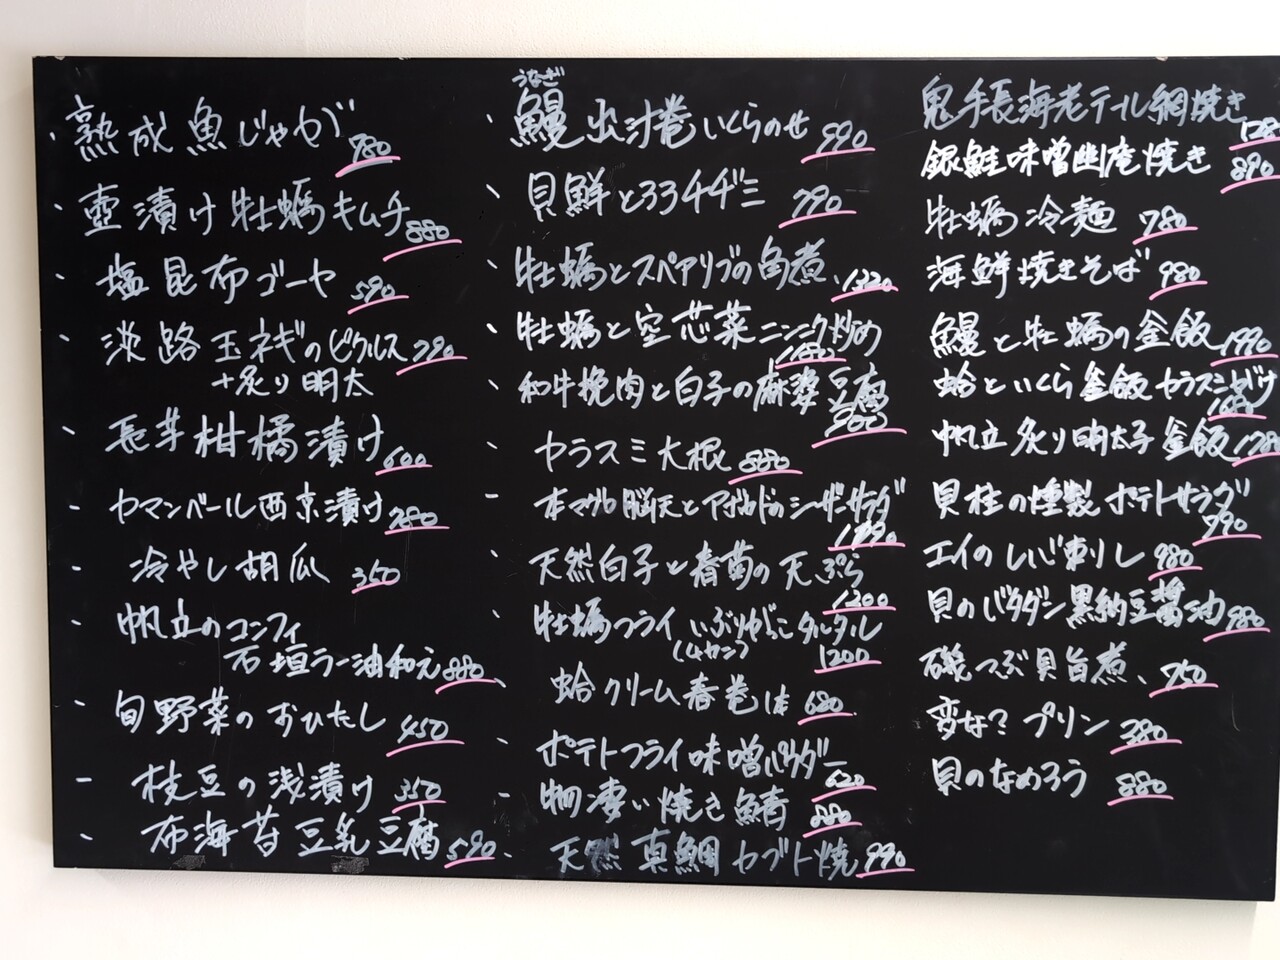 熟成魚じゃが 780
壺漬け牡蠣キムチ 880
塩昆布ゴーヤ 590
淡路玉ネギのピクルス 790
+炙り明太
長芋柑橘漬け 600
カマンベール西京漬け 280
冷やし胡瓜 350
帆立のコンフィ
石垣ラー油和え 880
旬野菜のおひたし 450
枝豆の浅漬け 350
布海苔豆乳豆腐 590
うなぎ
鰻出汁巻いくらのせ 990
貝鮮とろろチヂミ 790
牡蠣とスペアリブの角煮 1320
牡蠣と空芯菜ニンニク炒め
1180
和牛挽肉と白子の麻婆豆腐
900
カラスミ大根 880
本マグロ脳天とアボカドのシーザーサラダ
天然白子と春菊の天ぷら
1200
牡蠣フライいぶりがっこタルタル
1200
蛤クリーム春巻1本 680
ポテトフライ味噌パウダー
620
物凄い焼き鯖
880
天然真鯛カブト焼 990
鬼手長海老テール網焼き
128
銀鮭味噌幽庵焼き 890
牡蠣冷麺 780
海鮮焼きそば 980
鰻と牡蠣の釜飯 1990
蛤といくら釜飯カラスミかけ
帆立炙り明太子釜飯 178
貝柱の燻製ポテトサラダ
990
エイのレバ刺し 980
貝のバクダン黒納豆醤油 980
磯つぶ貝旨煮 750
変な?プリン 380
貝のなめろう 880